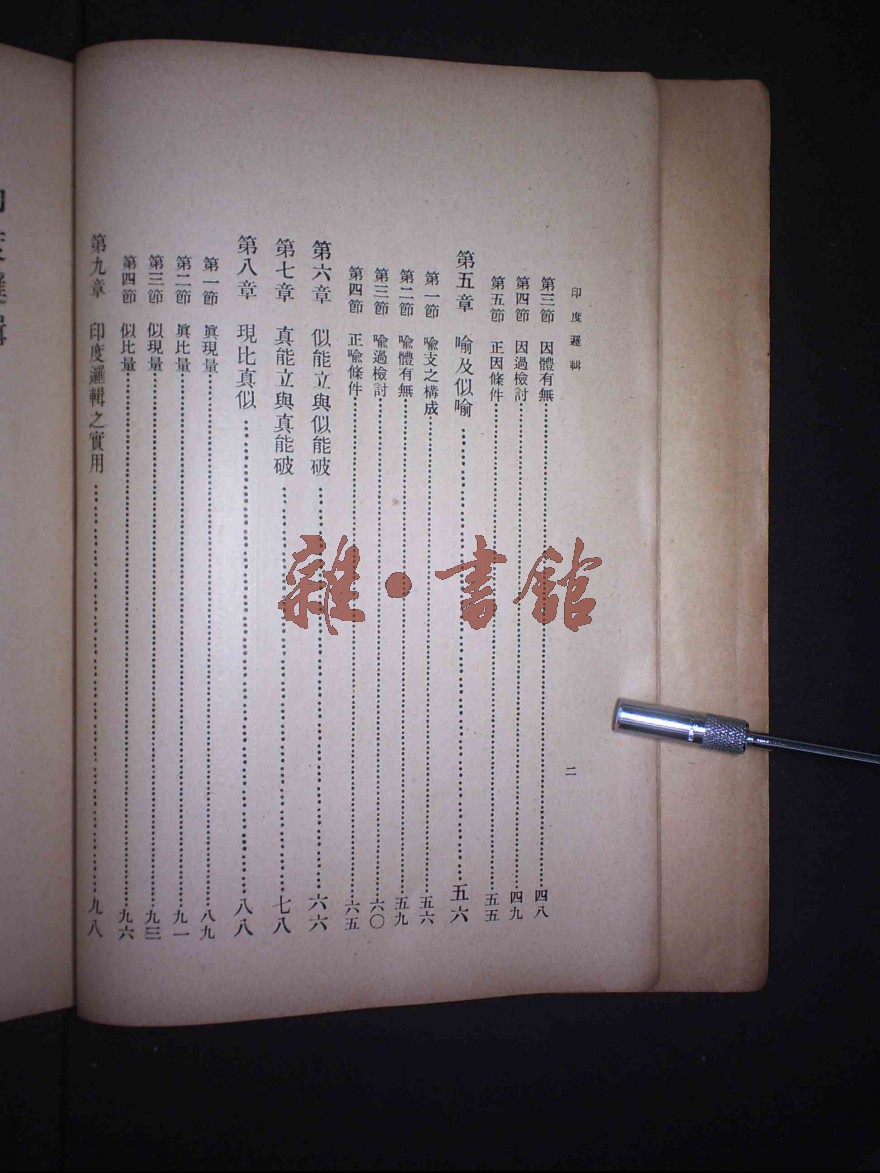 印度邏輯
二
第三節 因體有無 四八
第四節 因過檢討 四九
第五節 正因條件 五五
第五章 喻及似喻 五六
第一節 喻支之構成 五六
第二節 喻體有無 五九
第三節 喻過檢討 六〇
第四節 正喻條件 六五
第六章 似能立與似能破 六六
第七章 真能立與真能破 七八
第八章 現比真似 八八
第一節 眞現量 八九
第二節 眞比量 九一
第三節 似現量 九三
第四節 似比量 九六
第九章 印度邏輯之實用 九八
雜·書館